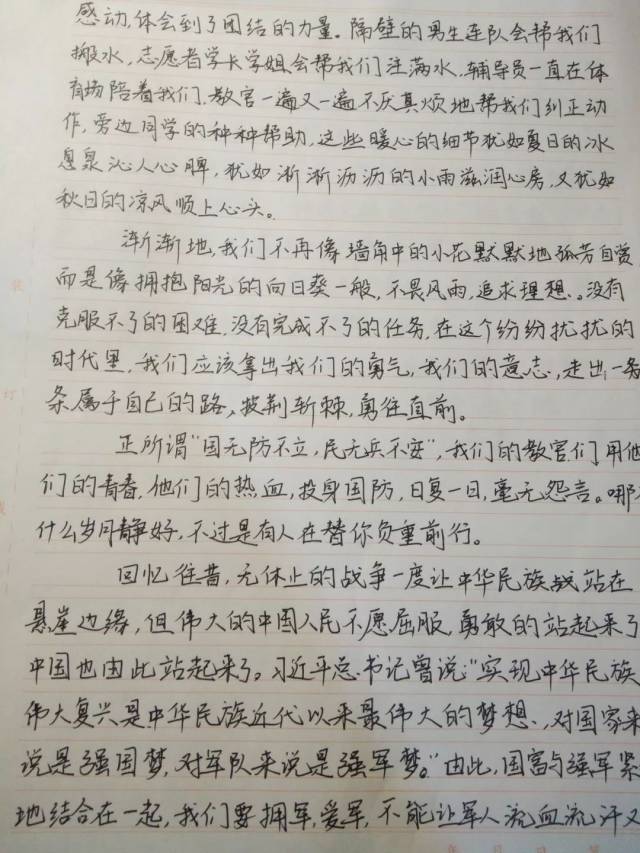 感动,体会到了团结的力量。隔壁的男生连队会帮我们
搬水,志愿者学长学姐会帮我们注满水,辅导员一直在体
育场陪着我们,教官一遍又一遍不厌其烦地帮我们纠正动
作,旁边同学的种种帮助,这些暖心的细节犹如夏日的冰
息泉沁人心脾,犹如淅淅沥沥的小雨滋润心房,又犹如
秋日的凉风顺上心头。
渐渐地,我们不再像墙角中的小花默默地孤芳自赏
而是像拥抱阳光的向日葵一般,不畏风雨,追求理想。没有
克服不了的困难,没有完成不了的任务,在这个纷纷扰扰的
时代里,我们应该拿出我们的勇气,我们的意志,走出一条
条属于自己的路,披荆斩棘,勇往直前。
正所谓“国无防不立,民无兵不安”,我们的教官们用他
们的青春,他们的热血,投身国防,日复一日,毫无怨言。哪有
什么岁月静好,不过是有人在替你负重前行。
回忆往昔,无休止的战争一度让中华民族战站在
悬崖边缘,但伟大的中国人民不愿屈服,勇敢的站起来了
中国也由此站起来了。习近平总书记曾说:“实现中华民族
伟大复兴是中华民族近代以来最伟大的梦想,对国家来
说是强国梦,对军队来说是强军梦。”由此,国富与强军紧
地结合在一起,我们要拥军,爱军,不能让军人流血流汗又